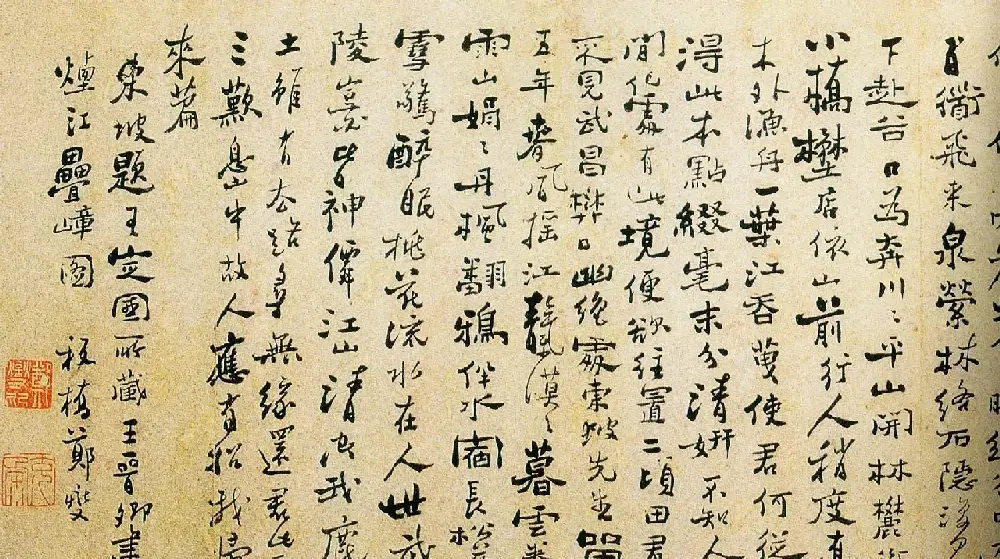 百衜飛来泉縈林絡石隱
下赴谷口為奔川〻平山開林麓
小橋壄店依山前行人稍度
木外漁舟一葉江吞使君何從
得此本點綴毫末分清妍不知人
間何處有此境便欲往置二頃田君
不見武昌樊口幽絶處東坡先生留
五年春風摇江天漠〻暮雲卷
雨山娟〻丹楓翻鴉伴水宿長松
雪驚醉眠桃花流水在人世武
陵豈皆神僊江山清空我塵
土雖有去路尋無緣還君此
三歎息山中故人應有招我歸
來篇
東坡題王定國所藏王晉卿畫
煙江疊嶂圖 板橋鄭燮